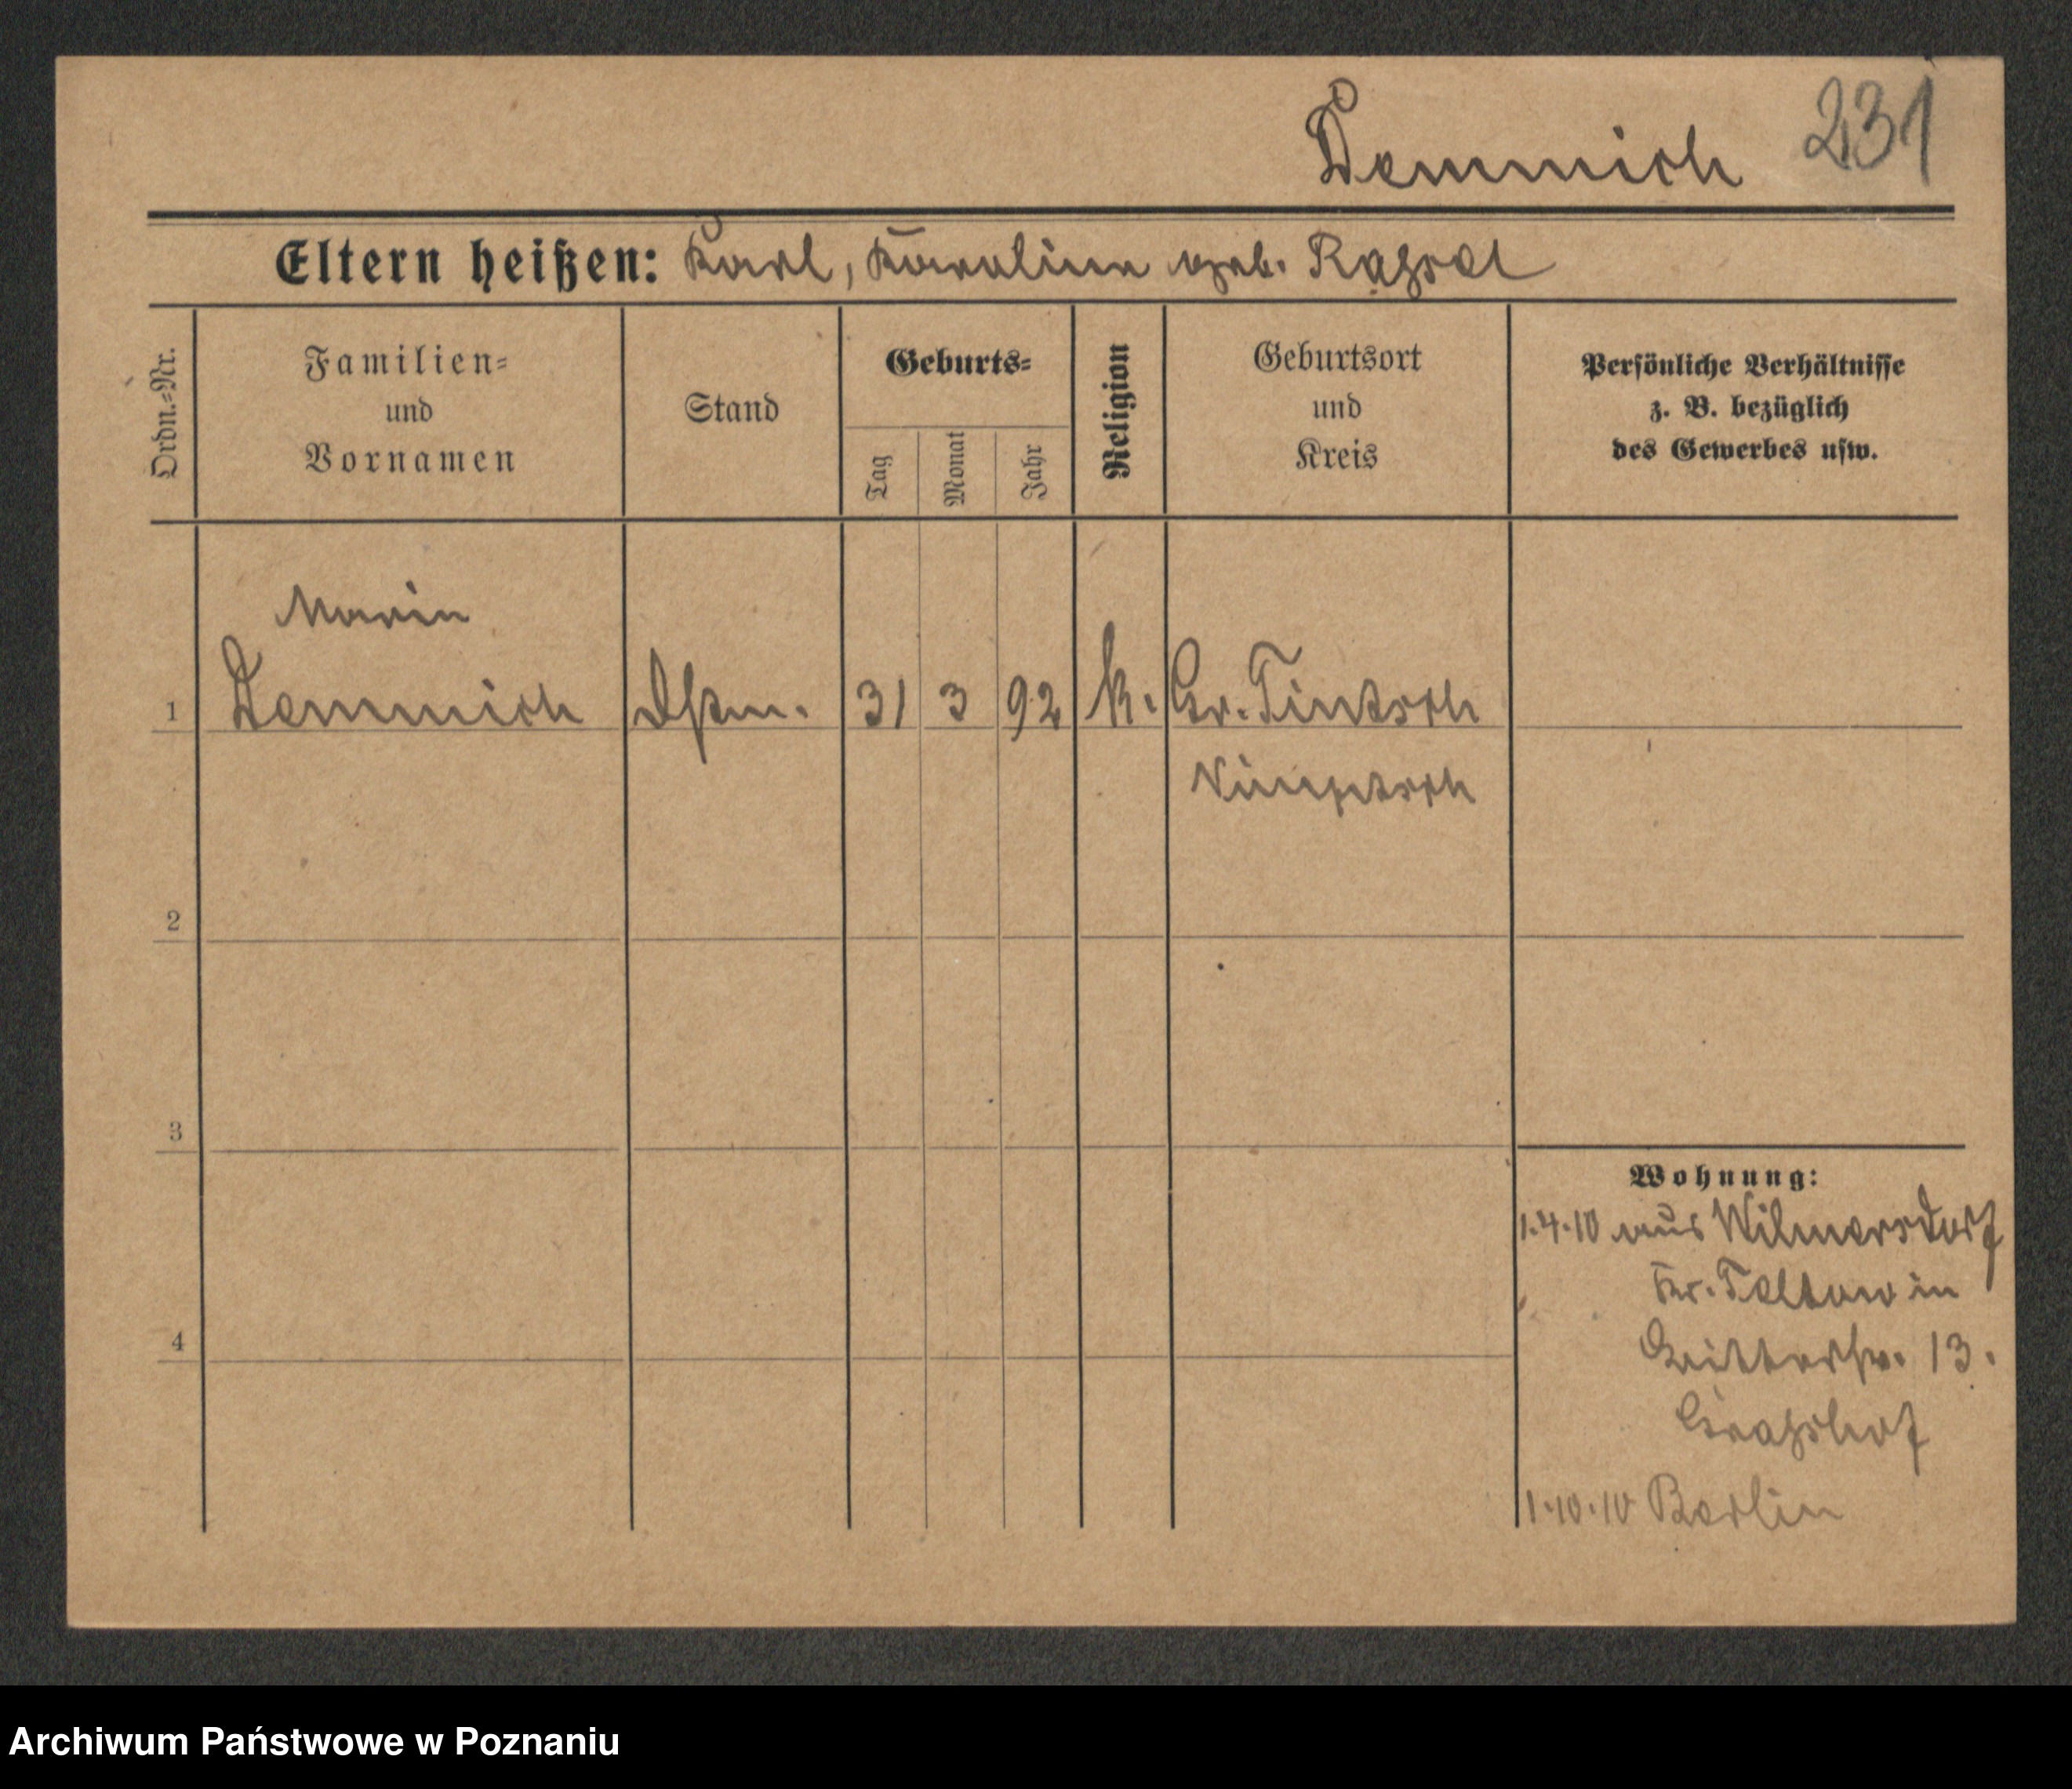 Demmich 231
Eltern heißen: Karl, Karoline geb.
Ordn.-Nr.
Familien-
und
Vornamen
Stand
Geburts-
Tag
Monat
Jahr
Religion
Geburtsort
und
Kreis
Persönliche Verhältnisse
z. B. bezüglich
des Gewerbes usw.
Marie
1 Demmich 31 3 92 k. Gr. Tintsch
Nimptsch
2
3
4
Wohnung:
1.4.10 aus Wilmersdorf
Kr. Teltow in
13.
1.10.10 Berlin
Archiwum Państwowe w Poznaniu